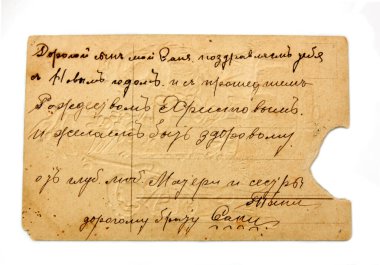 Дорогой сын мой Саня поздравляем тебя
с Новым годом и с прошедшим
Рождеством Христовым.
и желаем быть здоровому
от глуб. люб. Матери и сестры
Тани
дорогому брату Сани